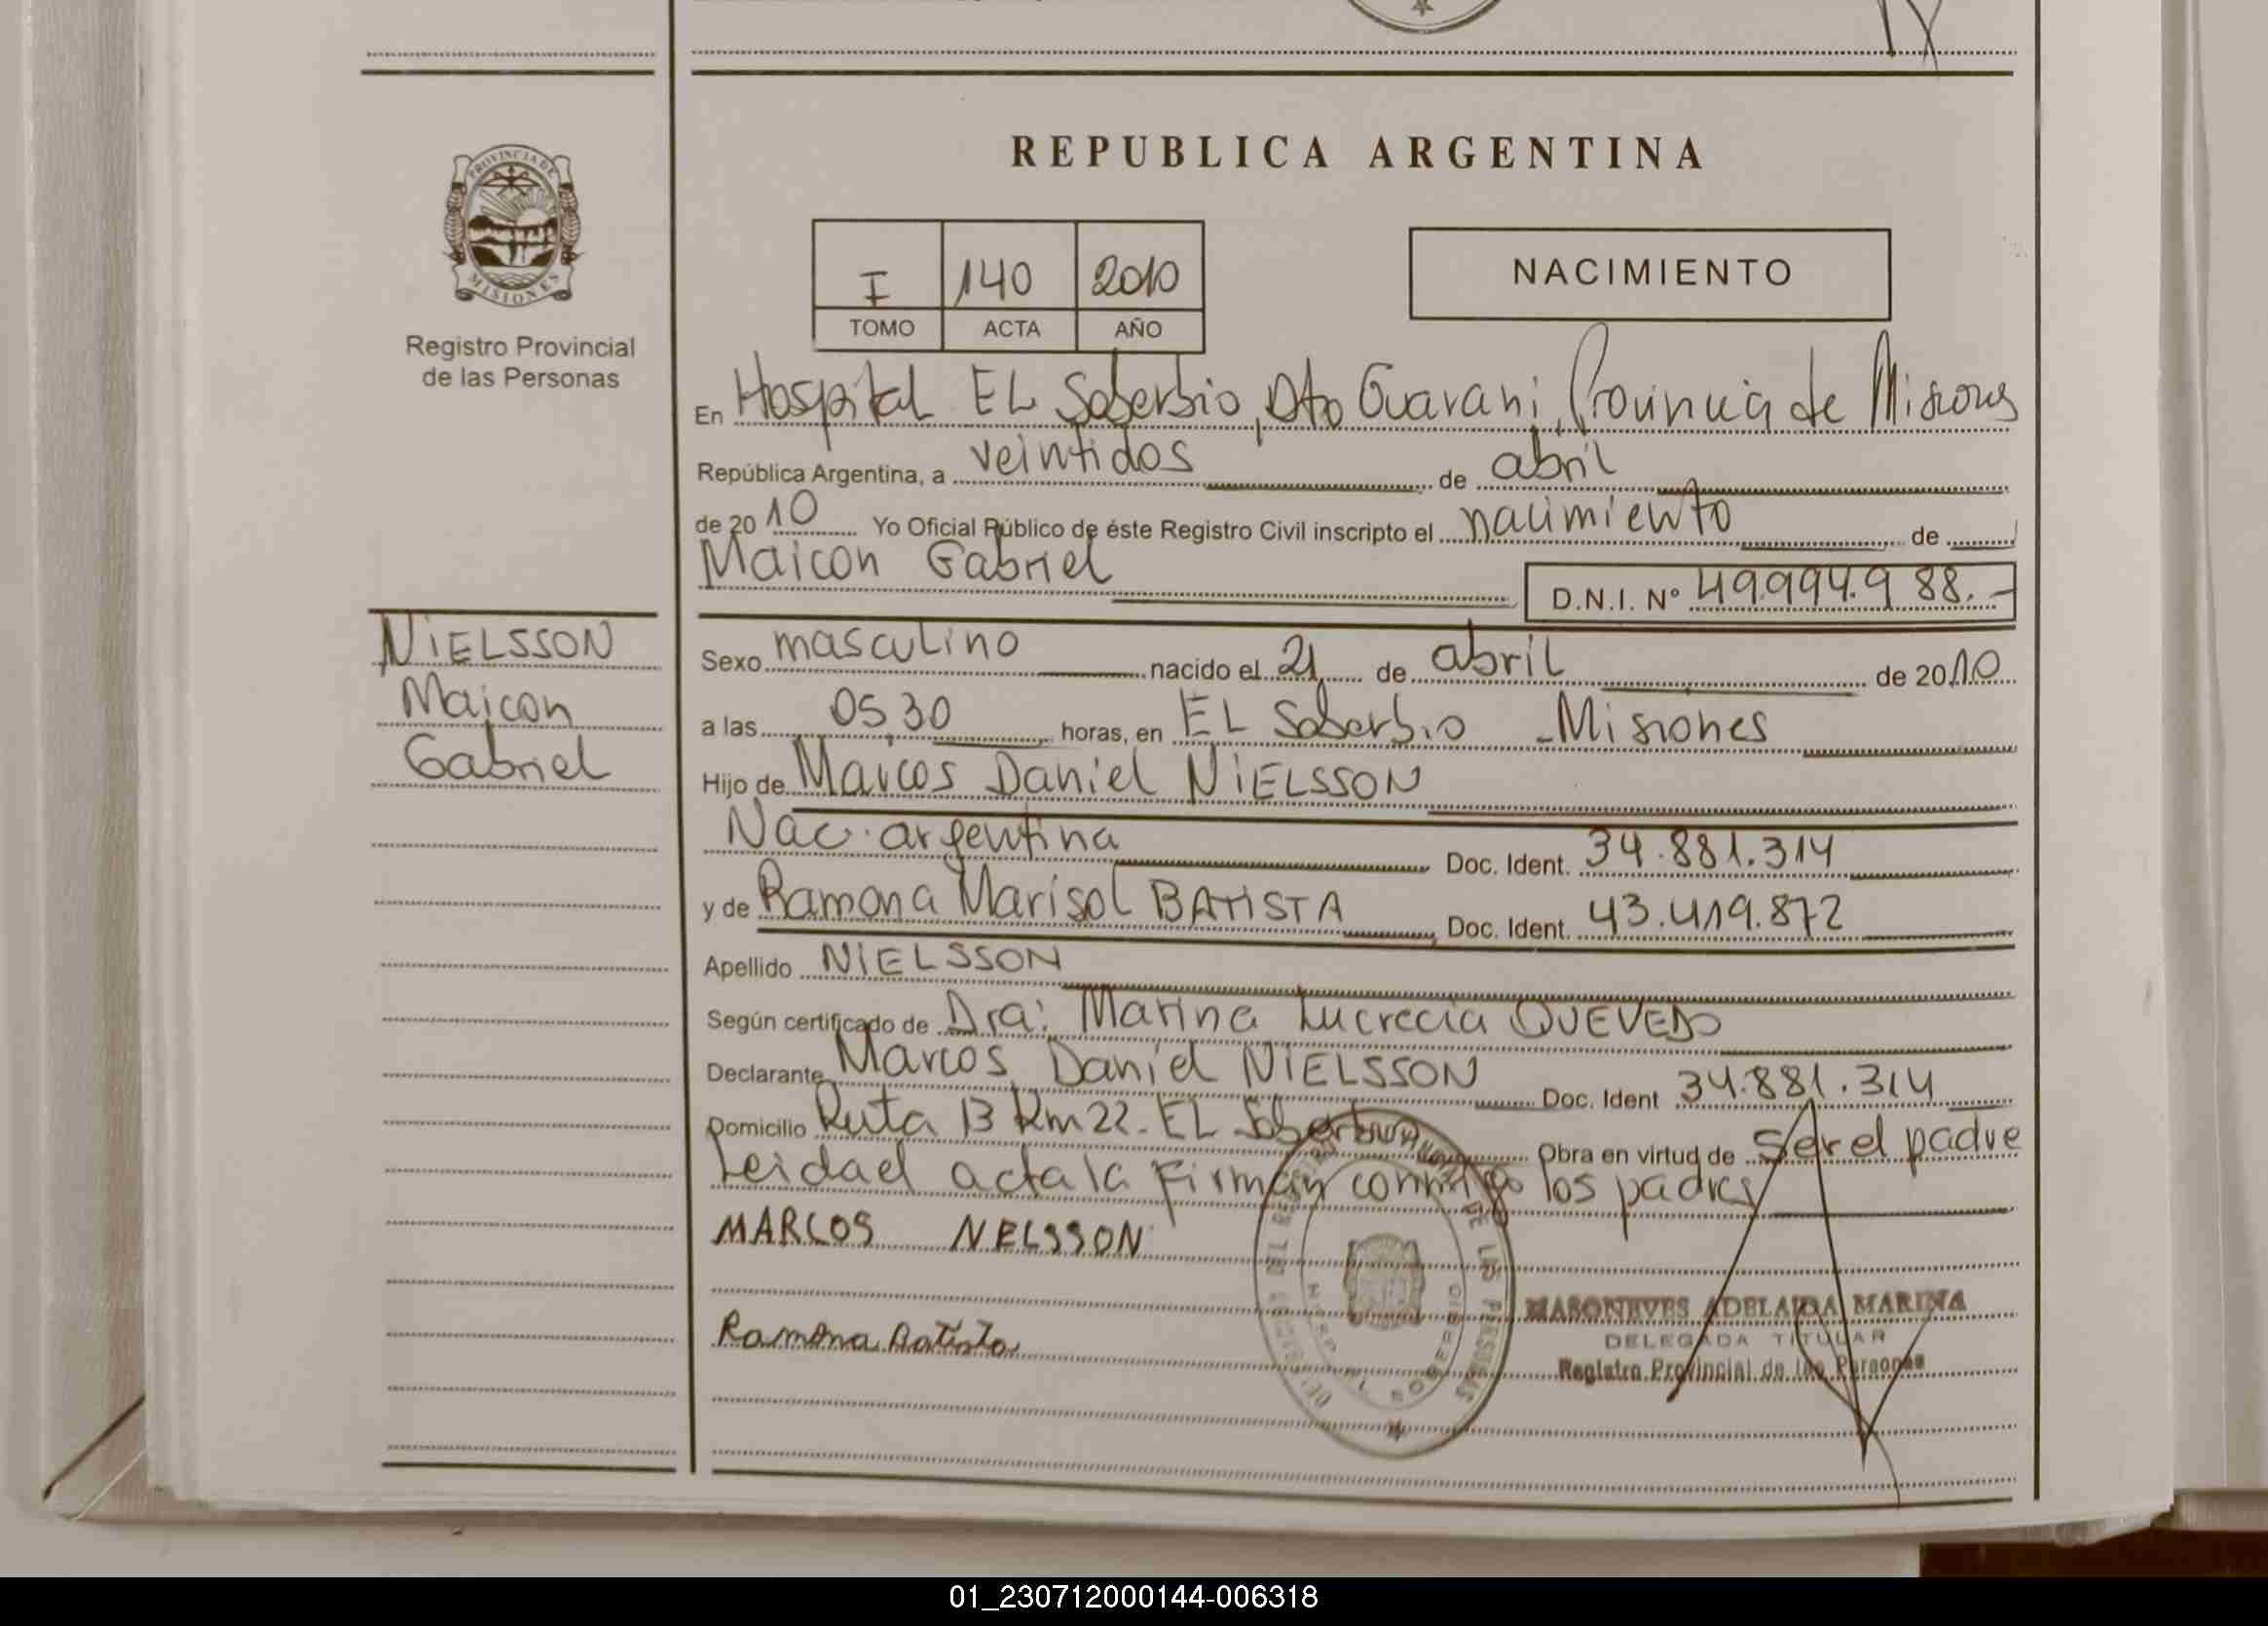 REPUBLICA ARGENTINA
PROVINCIA DE
MISIONES
Registro Provincial
de las Personas
I 140 2010
TOMO ACTA AÑO
NACIMIENTO
En Hospital EL Soberbio, Dto Guarani, Provincia de Misiones
República Argentina, a veintidos de abril
de 2010 Yo Oficial Público de éste Registro Civil inscripto el nacimiento de
Maicon Gabriel D.N.I. Nº 49.994.988.-
NIELSSON
Maicon
Gabriel
Sexo masculino nacido el 21 de abril de 2010
a las 05,30 horas, en EL Soberbio - Misiones
Hijo de Marcos Daniel NIELSSON
Nac. argentina Doc. Ident. 34.881.314
y de Ramona Marisol BATISTA Doc. Ident. 43.419.872
Apellido NIELSSON
Según certificado de Dra: Marina Lucrecia QUEVEDO
Declarante Marcos Daniel NIELSSON Doc. Ident 34.881.314
Domicilio Ruta 13 Km 22 - EL Soberbio Obra en virtud de ser el padre
Leida el acta la firman conmigo los padres
MARCOS NELSSON
MASONEVES ADELAIDA MARINA
DELEGADA TITULAR
Registro Provincial de las Personas
Ramona Batista
01_230712000144-006318